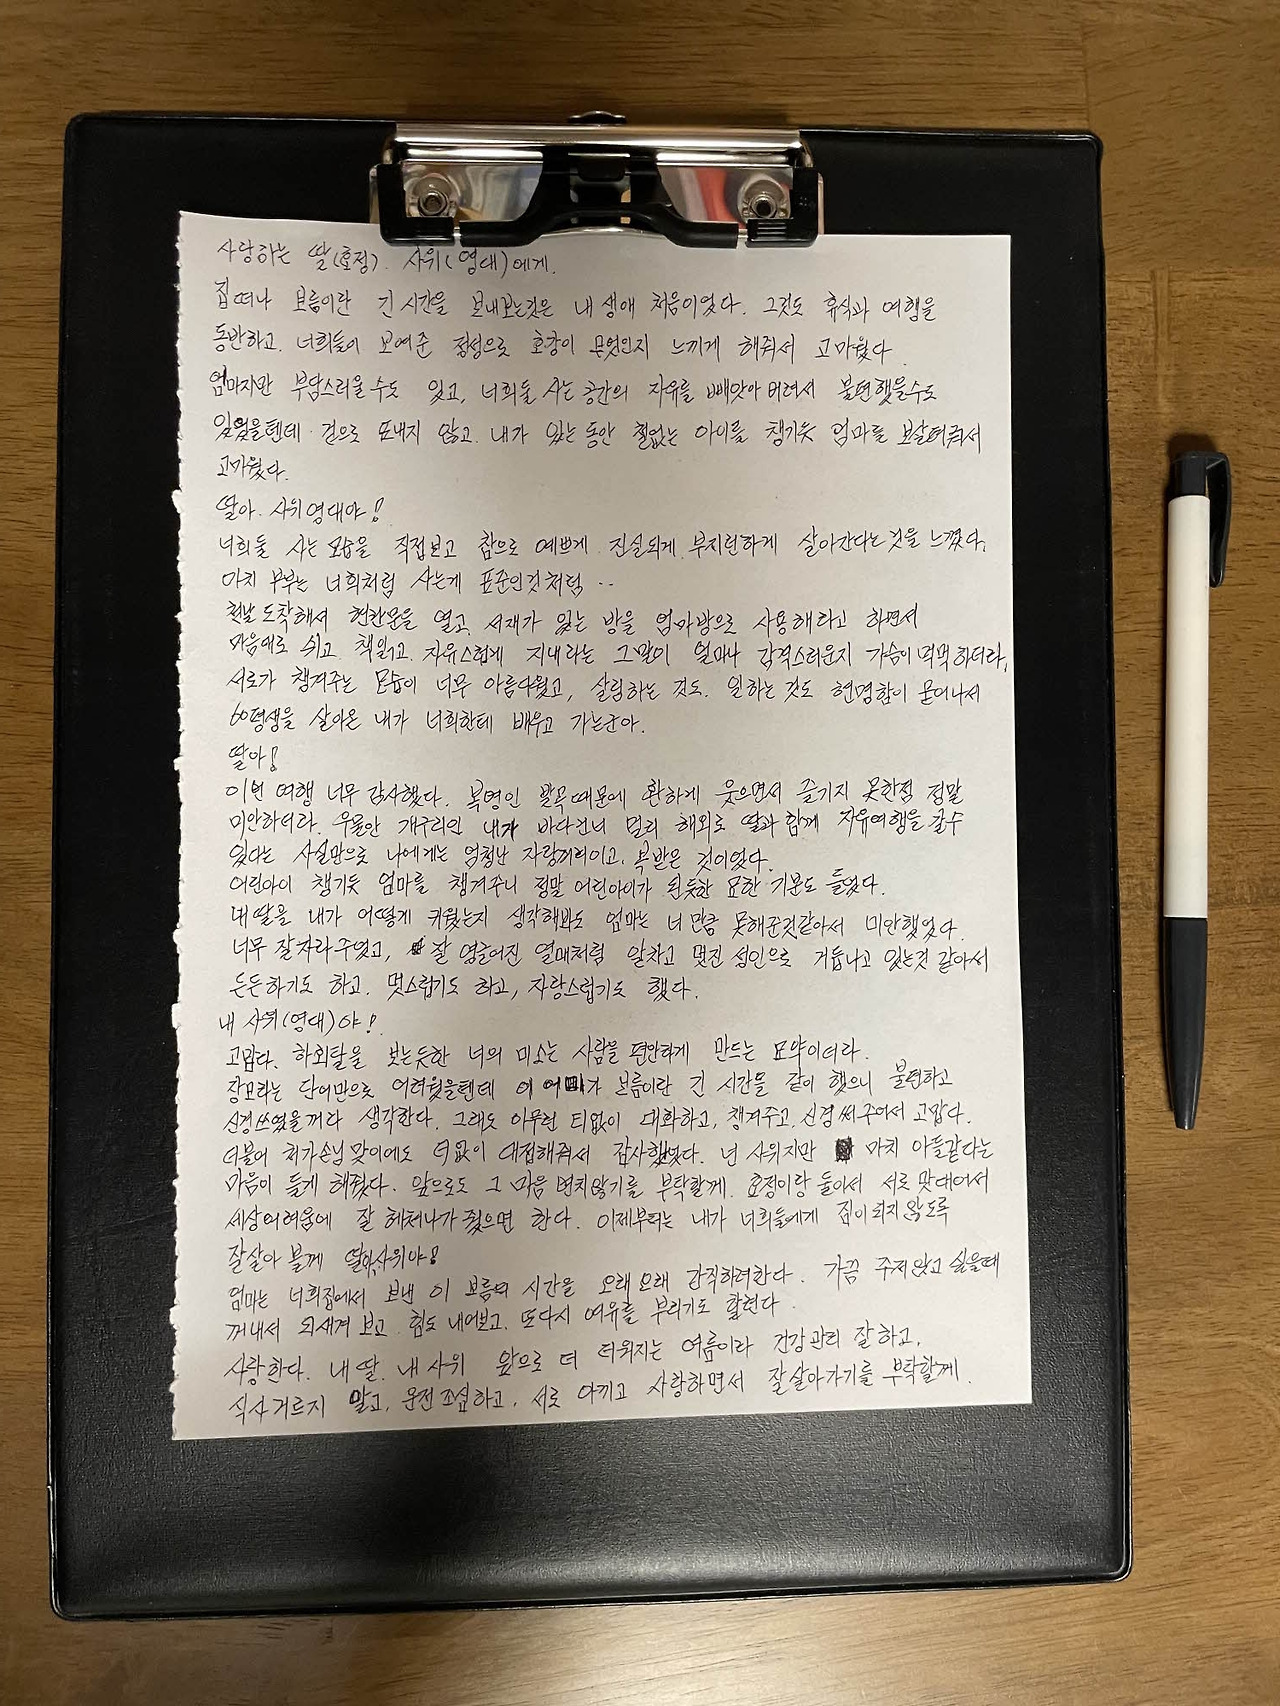 사랑하는 딸(효정). 사위(영대)에게.
집떠나 보름이란 긴 시간을 보내보는것은 내 생애 처음이었다. 그것도 휴식과 여행을
동반하고. 너희들이 보여준 정성으로 호강이 무엇인지 느끼게 해줘서 고마웠다
엄마지만 부담스러울수도 있고, 너희들 사는 공간의 자유를 빼앗아 버려서 불편했을수도
있었을텐데. 겉으로 표내지 않고. 내가 있는 동안 철없는 아이들 챙기듯 엄마를 보살펴줘서
고마웠다.
딸아. 사위영대야!
너희들 사는 모습을 직접보고 참으로 예쁘게. 진실되게. 부지런하게 살아간다는것을 느꼈다.
마치 부부는 너희처럼 사는게 표준인것처럼 ..
첫날 도착해서 현관문을 열고. 서재가 있는 방을 엄마방으로 사용해라고 하면서
마음대로 쉬고. 책읽고. 자유스럽게 지내라는 그말이 얼마나 감격스러운지 가슴이 먹먹하더라,
서로가 챙겨주는 모습이 너무 아름다웠고, 살림하는 것도. 일하는 것도 현명함이 묻어나서
60평생을 살아온 내가 너희한테 배우고 가는구나.
딸아!
이번 여행 너무 감사했다. 복병인 발목때문에 환하게 웃으면서 즐기지 못한점 정말
미안하더라. 우물안 개구리인 내가 바다건너 멀리 해외로 딸과 함께 자유여행을 갈수
있다는 사실만으로 나에게는 엄청난 자랑꺼리이고. 복받은 것이었다.
어린아이 챙기듯 엄마를 챙겨주니 정말 어린아이가 된듯한 묘한 기분도 들었다.
내딸을 내가 어떻게 키웠는지 생각해봐도 엄마는 너만큼 못해준것같아서 미안했었다.
너무 잘자라주었고, 잘 영글어진 열매처럼 알차고 멋진 성인으로 거듭나고 있는것 같아서
든든하기도 하고. 멋스럽기도 하고, 자랑스럽기도 했다.
내 사위(영대)야!
고맙다. 하회탈을 보는듯한 너의 미소는 사람을 편안하게 만드는 묘약이더라.
장모라는 단어만으로 어려웠을텐데 이 가 보름이란 긴 시간을 같이 했으니 불편하고
신경쓰였을꺼라 생각한다. 그래도 아무런 티없이 대화하고, 챙겨주고, 신경써주어서 고맙다.
더불어 처가손님 맞이에도 더없이 대접해줘서 감사했었다. 넌 사위지만 마치 아들같다는
마음이 들게 해줬다. 앞으로도 그 마음 변치않기를 부탁할께. 효정이랑 둘이서 서로 맞대어서
세상어려움에 잘 헤쳐나가줬으면 한다. 이제부터는 내가 너희들에게 짐이되지 않도록
잘살아 볼께 딸아,사위야!
엄마는 너희집에서 보낸 이 보름의 시간을 오래오래 간직하려한다. 가끔 주저앉고 싶을때
꺼내서 되새겨 보고. 힘도 내어보고. 또다시 여유를 부리기도 할련다.
사랑한다. 내 딸. 내 사위 앞으로 더 더워지는 여름이라 건강관리 잘하고.
식사거르지 말고. 운전조심하고. 서로 아끼고 사랑하면서 잘살아가기를 부탁할께.